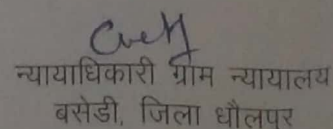 न्यायाधिकारी ग्राम न्यायालय
बसेडी, जिला धौलपुर